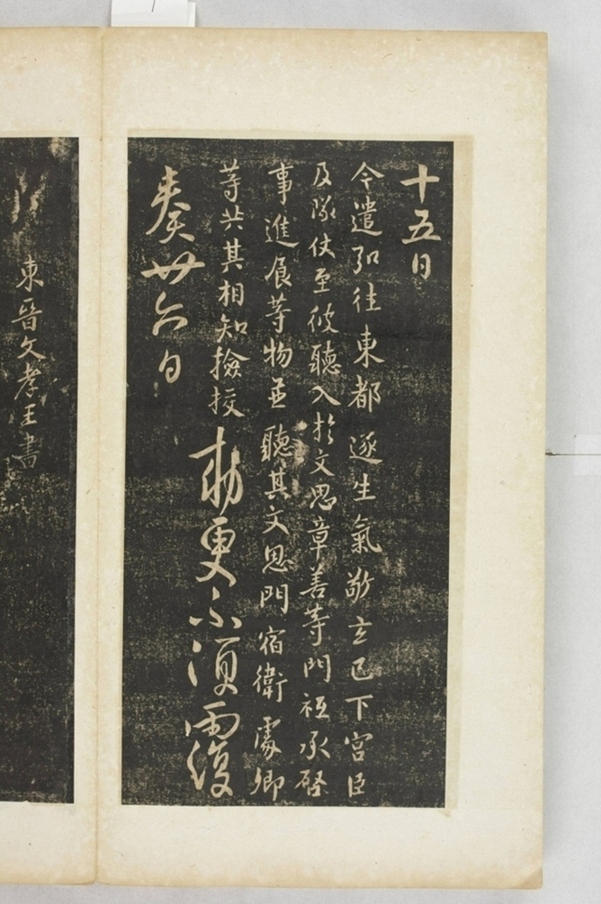 十五日
令遣弘往東都逐生氣敬玄已下宮臣
及隊仗至彼聽入於文思章善等門祗承啓
事進展等物並聽其文思門宿衛處卿
等共其相知撿挍敕更不須覆
奏廿六日
東晉文孝王書